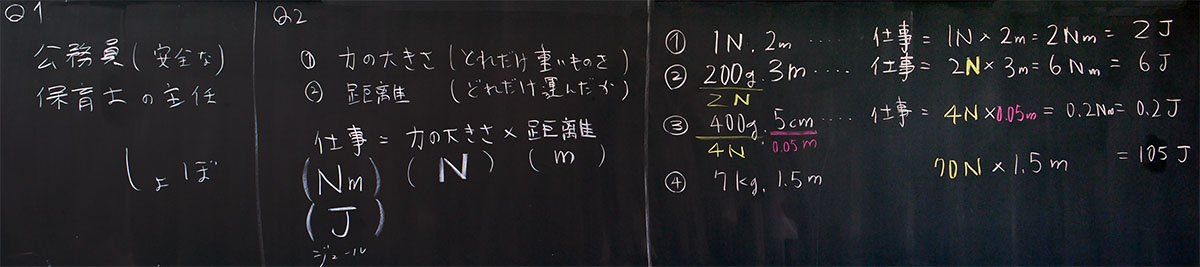 Q1
公務員(安全な)
保育士の主任
しょぼ
Q2
① 力の大きさ(どれだけ重いものを)
② 距離 (どれだけ運んだか)
仕事 = 力の大きさ × 距離
(Nm) (N) (m)
(J)
ジュール
① 1N. 2m ..... 仕事 = 1N × 2m = 2Nm = 2J
② 200g. 3m ..... 仕事 = 2N × 3m = 6Nm = 6J
2N
③ 400g. 5cm .... 仕事 = 4N × 0.05m = 0.2Nm = 0.2J
4N 0.05m
④ 7kg. 1.5m 70N × 1.5m = 105J